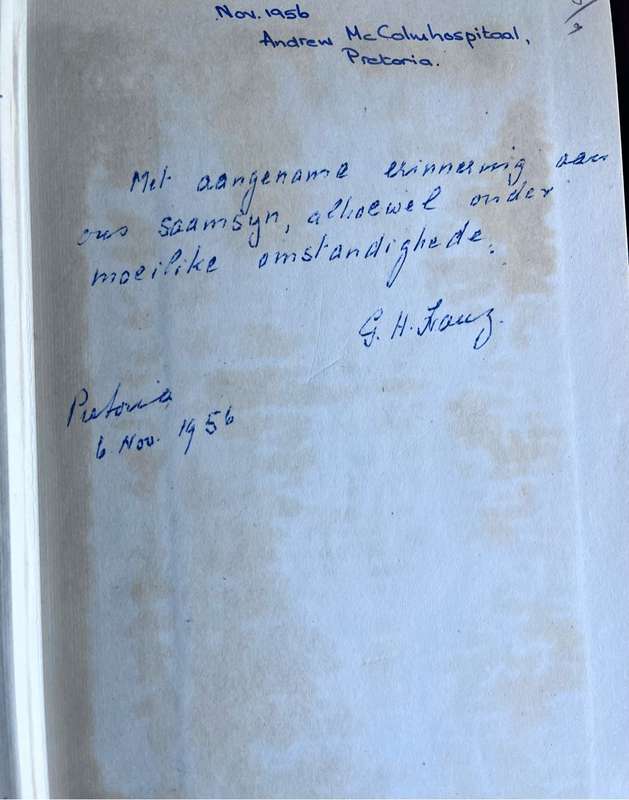 Nov. 1956
Andrew McColmhospitaal,
Pretoria.
Met aangename erinnering aan
ons saamsyn, alhoewel onder
moeilike omstandighede.
G. H. Franz.
Pretoria
6 Nov. 1956